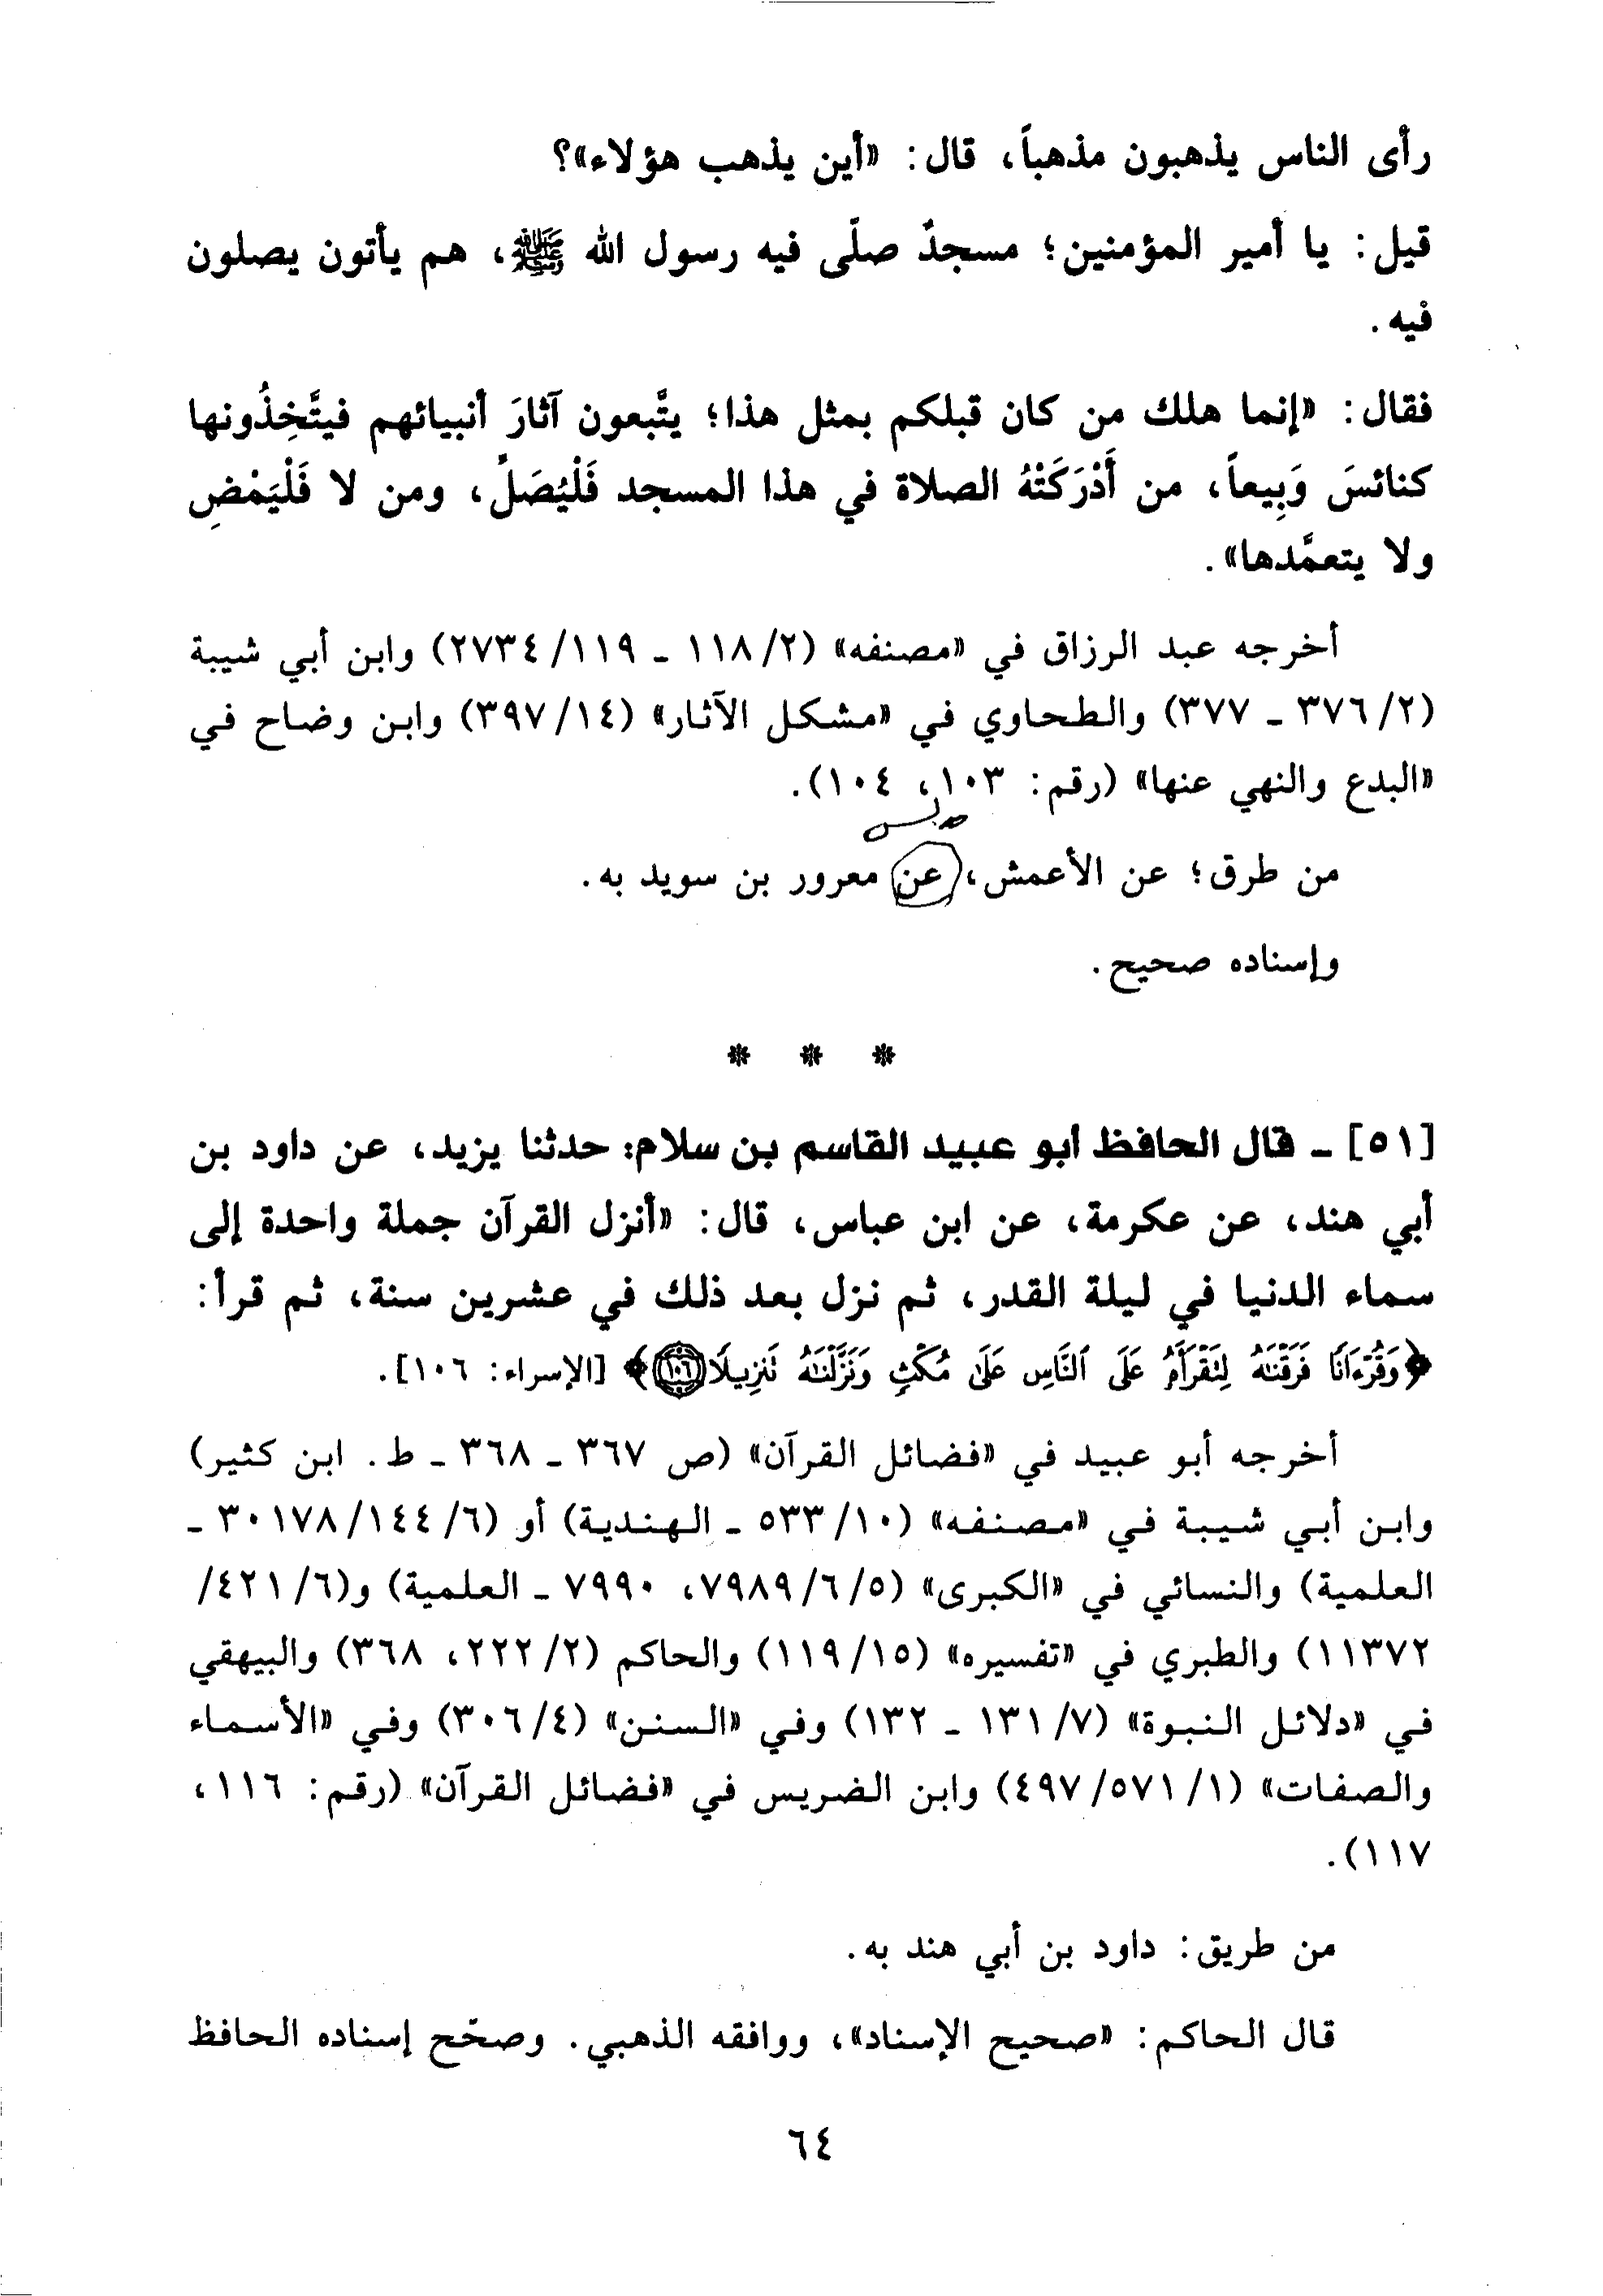 رأى الناس يذهبون مذهباً، قال: «أين يذهب هؤلاء»؟
قيل: يا أمير المؤمنين؛ مسجدٌ صلّى فيه رسول الله ﷺ، هم يأتون يصلون
فيه.
فقال: «إنما هلك من كان قبلكم بمثل هذا؛ يتَّبعون آثارَ أنبيائهم فيتَّخِذُونها
كنائسَ وَبِيعاً، من أَدْرَكَتْهُ الصلاة في هذا المسجد فَلْيُصَلِّ، ومن لا فَلْيَمْضِ
ولا يتعمَّدها».
أخرجه عبد الرزاق في «مصنفه» (٢/ ١١٨ - ١١٩/ ٢٧٣٤) وابن أبي شيبة
(٢/ ٣٧٦ - ٣٧٧) والطحاوي في «مشكل الآثار» (١٤/ ٣٩٧) وابن وضاح في
«البدع والنهي عنها» (رقم: ١٠٣، ١٠٤).
من طرق؛ عن الأعمش، عن معرور بن سويد به.
وإسناده صحيح.
* * *
[٥١] - قال الحافظ أبو عبيد القاسم بن سلام: حدثنا يزيد، عن داود بن
أبي هند، عن عكرمة، عن ابن عباس، قال: «أنزل القرآن جملة واحدة إلى
سماء الدنيا في ليلة القدر، ثم نزل بعد ذلك في عشرين سنة، ثم قرأ:
﴿وَقُرْءَانًا فَرَقْنَٰهُ لِتَقْرَأَهُۥ عَلَى ٱلنَّاسِ عَلَىٰ مُكْثٍ وَنَزَّلْنَٰهُ تَنزِيلًا ١٠٦﴾ [الإسراء: ١٠٦].
أخرجه أبو عبيد في «فضائل القرآن» (ص ٣٦٧ - ٣٦٨ - ط. ابن كثير)
وابن أبي شيبة في «مصنفه» (١٠/ ٥٣٣ - الهندية) أو (٦/ ١٤٤/ ٣٠١٧٨ -
العلمية) والنسائي في «الكبرى» (٥/ ٦/ ٧٩٨٩، ٧٩٩٠ - العلمية) و(٦/ ٤٢١/
١١٣٧٢) والطبري في «تفسيره» (١٥/ ١١٩) والحاكم (٢/ ٢٢٢، ٣٦٨) والبيهقي
في «دلائل النبوة» (٧/ ١٣١ - ١٣٢) وفي «السنن» (٤/ ٣٠٦) وفي «الأسماء
والصفات» (١/ ٥٧١/ ٤٩٧) وابن الضريس في «فضائل القرآن» (رقم: ١١٦،
١١٧).
من طريق: داود بن أبي هند به.
قال الحاكم: «صحيح الإسناد»، ووافقه الذهبي. وصحّح إسناده الحافظ
٦٤